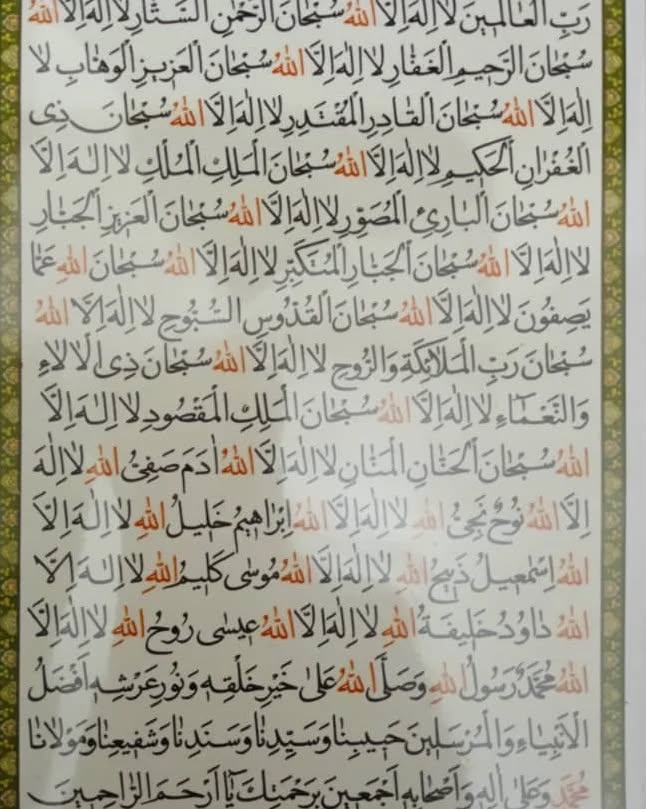 رَبِّ الْعَالَمِينَ لَا اِلٰهَ اِلَّا اللهُ سُبْحَانَ الرَّحْمٰنِ السَّتَّارِ لَا اِلٰهَ اِلَّا اللهُ
سُبْحَانَ الرَّحِيمِ الْغَفَّارِ لَا اِلٰهَ اِلَّا اللهُ سُبْحَانَ الْعَزِيزِ الْوَهَّابِ لَا
اِلٰهَ اِلَّا اللهُ سُبْحَانَ الْقَادِرِ الْمُقْتَدِرِ لَا اِلٰهَ اِلَّا اللهُ سُبْحَانَ ذِى
الْغُفْرَانِ الْحَكِيمِ لَا اِلٰهَ اِلَّا اللهُ سُبْحَانَ الْمَلِكِ الْمُلْكِ لَا اِلٰهَ اِلَّا
اللهُ سُبْحَانَ الْبَارِئِ الْمُصَوِّرِ لَا اِلٰهَ اِلَّا اللهُ سُبْحَانَ الْعَزِيزِ الْجَبَّارِ
لَا اِلٰهَ اِلَّا اللهُ سُبْحَانَ الْجَبَّارِ الْمُتَكَبِّرِ لَا اِلٰهَ اِلَّا اللهُ سُبْحَانَ اللهِ عَمَّا
يَصِفُونَ لَا اِلٰهَ اِلَّا اللهُ سُبْحَانَ الْقُدُّوسِ السُّبُّوحِ لَا اِلٰهَ اِلَّا اللهُ
سُبْحَانَ رَبِّ الْمَلَائِكَةِ وَالرُّوحِ لَا اِلٰهَ اِلَّا اللهُ سُبْحَانَ ذِى الْاٰلَاءِ
وَالنَّعْمَاءِ لَا اِلٰهَ اِلَّا اللهُ سُبْحَانَ الْمَلِكِ الْمَقْصُودِ لَا اِلٰهَ اِلَّا
اللهُ سُبْحَانَ الْحَنَّانِ الْمَنَّانِ لَا اِلٰهَ اِلَّا اللهُ اٰدَمَ صَفِىُّ اللهِ لَا اِلٰهَ
اِلَّا اللهُ نُوحٌ نَجِىُّ اللهِ لَا اِلٰهَ اِلَّا اللهُ اِبْرَاهِيمُ خَلِيلُ اللهِ لَا اِلٰهَ اِلَّا
اللهُ اِسْمٰعِيلُ ذَبِيحُ اللهِ لَا اِلٰهَ اِلَّا اللهُ مُوسٰى كَلِيمُ اللهِ لَا اِلٰهَ اِلَّا
اللهُ دَاوُدُ خَلِيفَةُ اللهِ لَا اِلٰهَ اِلَّا اللهُ عِيسٰى رُوحُ اللهِ لَا اِلٰهَ اِلَّا
اللهُ مُحَمَّدٌ رَسُولُ اللهِ وَصَلَّى اللهُ عَلٰى خَيْرِ خَلْقِهِ وَنُورِ عَرْشِهِ اَفْضَلُ
الْاَنْبِيَاءِ وَالْمُرْسَلِينَ حَبِيبِنَا وَسَيِّدِنَا وَسَنَدِنَا وَشَفِيعِنَا وَمَوْلَانَا
مُحَمَّدٍ وَعَلٰى اٰلِهِ وَاَصْحَابِهِ اَجْمَعِينَ بِرَحْمَتِكَ يَا اَرْحَمَ الرَّاحِمِينَ